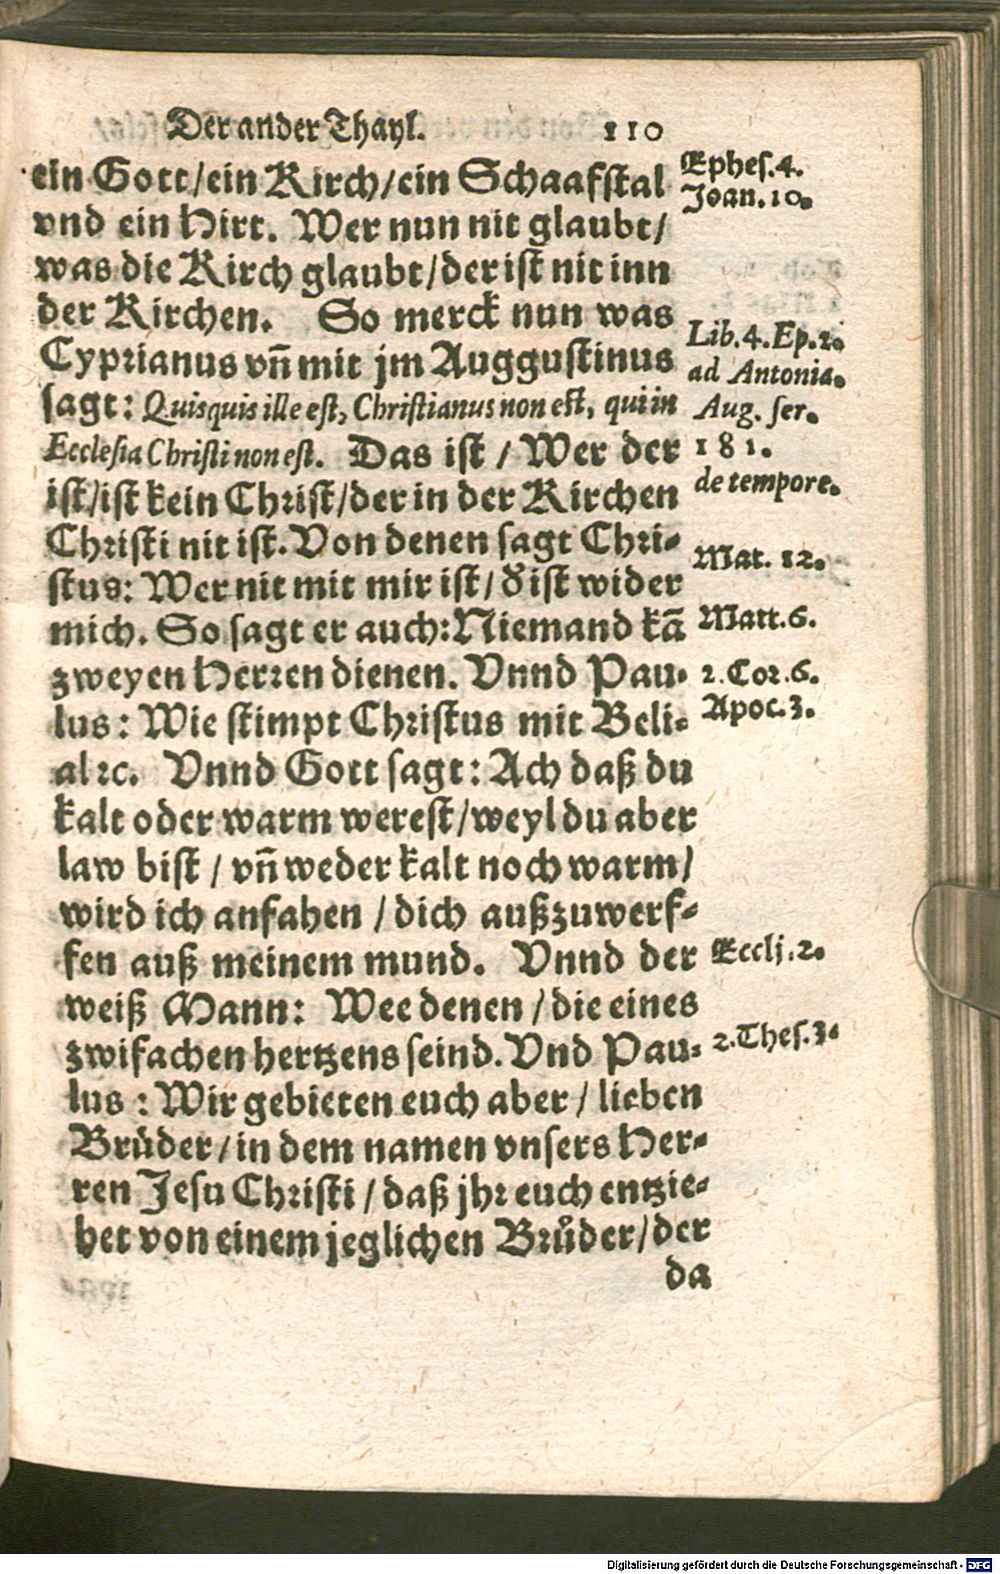 Der ander Thayl. 110
ein Gott/ein Kirch/ein Schaafstal
vnd ein Hirt. Wer nun nit glaubt/
was die Kirch glaubt/der ist nit inn
der Kirchen. So merck nun was
Cyprianus vñ mit jm Auggustinus
sagt: Quisquis ille est, Christianus non est, qui in
Ecclesia Christi non est. Das ist / Wer der
ist/ist kein Christ/der in der Kirchen
Christi nit ist. Von denen sagt Chri-
stus: Wer nit mit mir ist/ d' ist wider
mich. So sagt er auch: Niemand kā
zweyen Herren dienen. Vnnd Pau-
lus: Wie stimpt Christus mit Beli-
al ꝛc. Vnnd Gott sagt: Ach daß du
kalt oder warm werest/weyl du aber
law bist / vñ weder kalt noch warm/
wird ich anfahen / dich außzuwerf-
fen auß meinem mund. Vnnd der
weiß Mann: Wee denen / die eines
zwifachen hertzens seind. Vnd Pau-
lus: Wir gebieten euch aber / lieben
Brüder / in dem namen vnsers Her-
ren Jesu Christi / daß jhr euch entzie-
het von einem jeglichen Brůder/der
da
Ephes. 4.
Joan. 10.
Lib. 4. Ep. 2.
ad Antonia.
Aug. ser.
181.
de tempore.
Mat. 12.
Matt. 6.
2. Cor. 6.
Apoc. 3.
Eccli. 2.
2. Thes. 3.
Digitalisierung gefördert durch die Deutsche Forschungsgemeinschaft - DFG